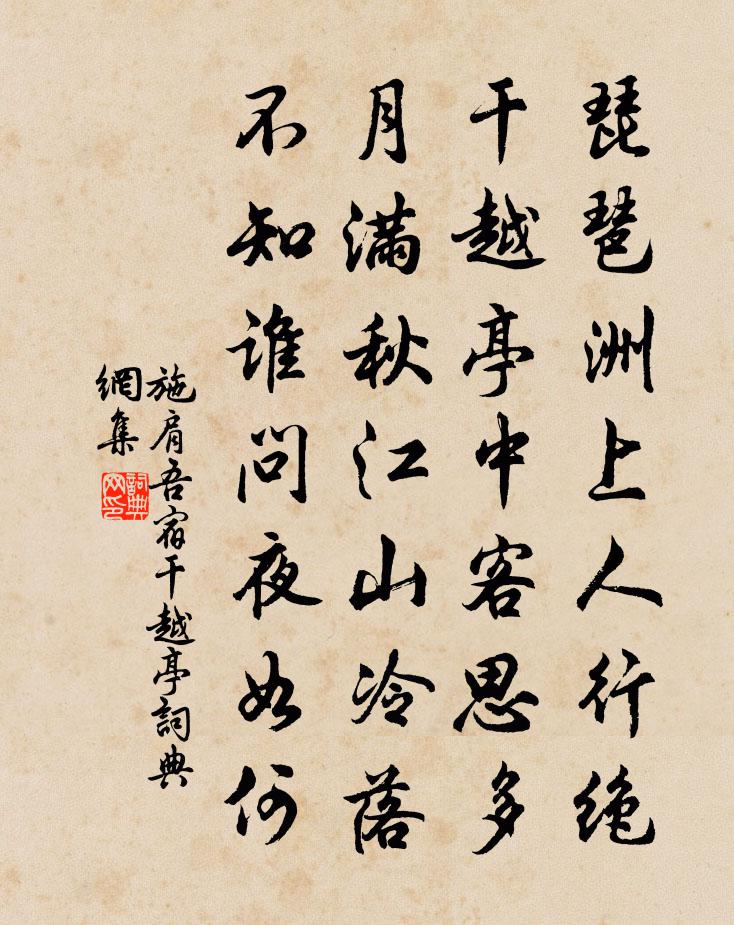 琵琶洲上人行绝
干越亭中客思多
月满秋江山冷落
不知谁问夜如何
施肩吾宿干越亭詞典
網集
詞典
网印